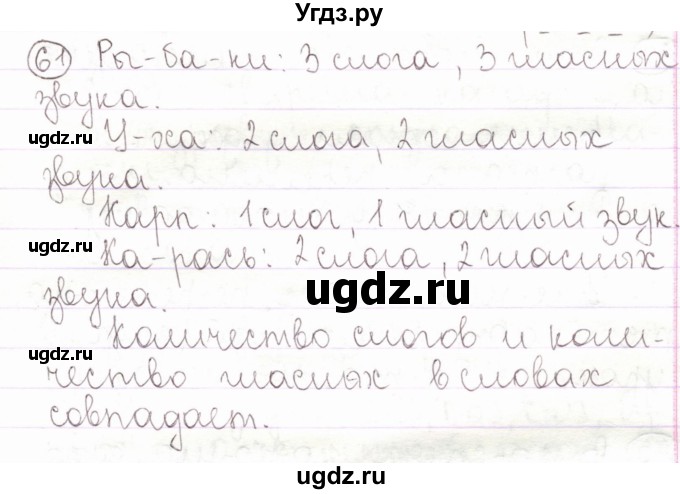 Угдз.ру
61 Ры-ба-ки: 3 слога, 3 гласных
звука.
ugdz.ru
У-ха: 2 слога, 2 гласных
звука.
Карп: 1 слог, 1 гласный звук.
ugdz.ru
Ка-рась: 2 слога, 2 гласных
звука.
ugdz.ru
Количество слогов и коли-
ugdz.ru
чество гласных в словах
совпадает.
ugdz.ru
ugdz.ru